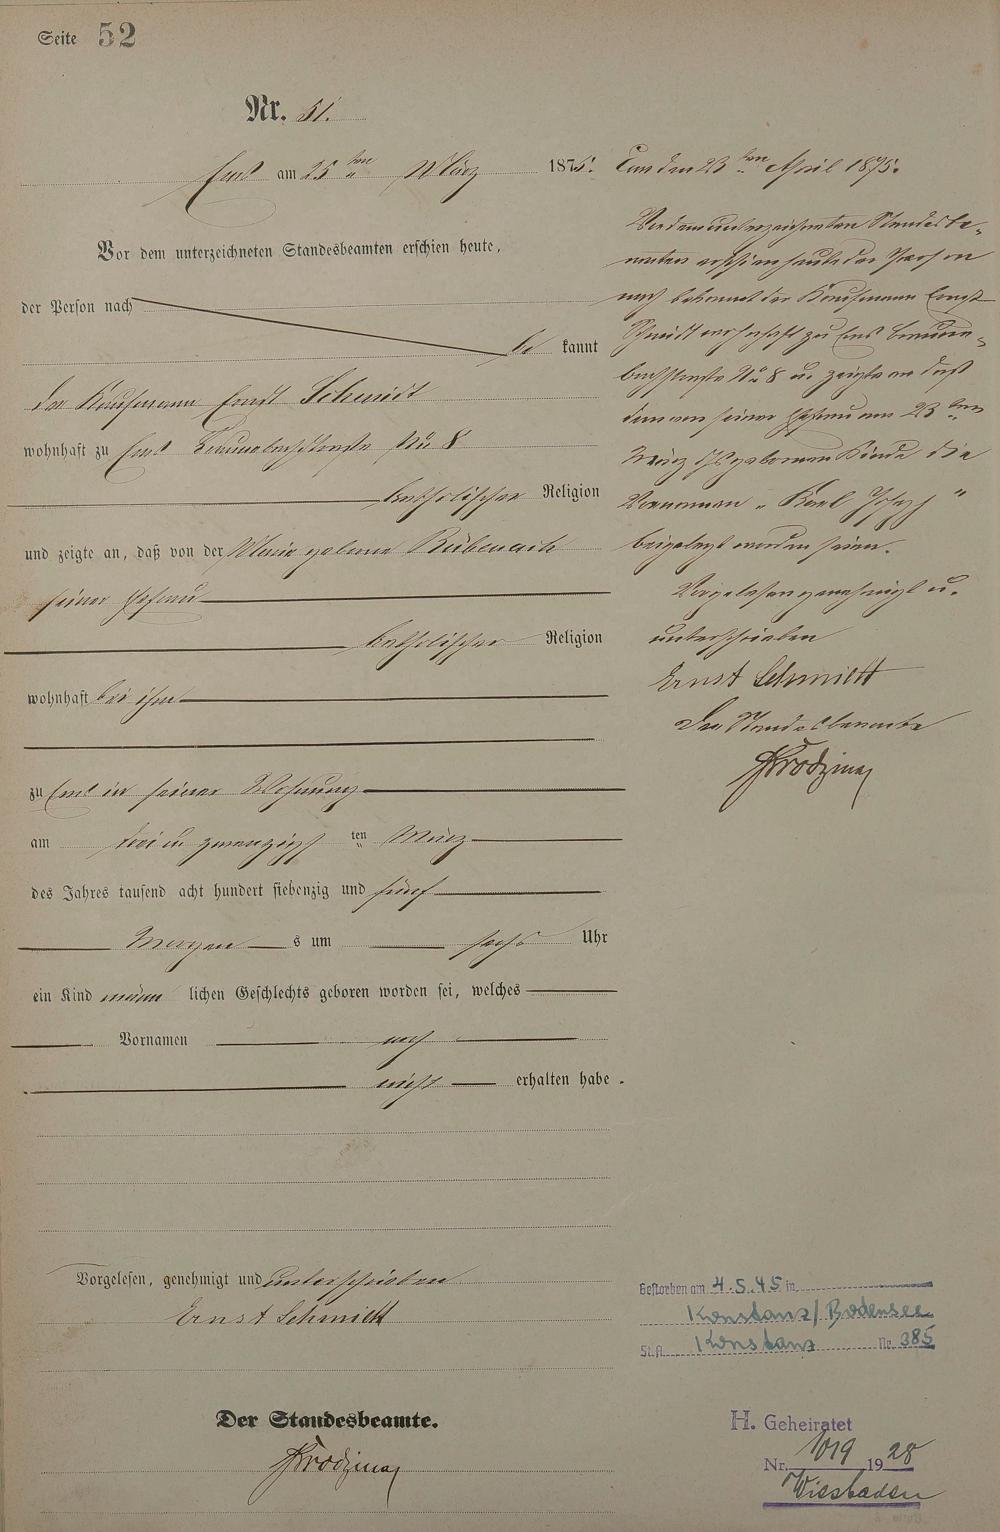 Seite 52
Nr. 51.
Ems am 25ten März 1875.
Vor dem unterzeichneten Standesbeamten erschien heute,
der Person nach
be kannt
der Kaufmann Ernst Schmidt
wohnhaft zu Ems Braunebachstraße No 8
katholischer Religion
und zeigte an, daß von der Marie geborne Rübenach
seiner Ehefrau
katholischer Religion
wohnhaft bei ihm
zu Ems in seiner Wohnung
am drei u zwanzigsten März
des Jahres tausend acht hundert siebenzig und fünf
Morgens um sechs Uhr
ein Kind männlichen Geschlechts geboren worden sei, welches
Vornamen noch
nicht erhalten habe.
Vorgelesen, genehmigt und unterschrieben
Ernst Schmidt
Der Standesbeamte.
Ems den 23ten April 1875.
Vor dem unterzeichneten Standesbe-
amten erschien heute der Person
nach bekannt der Kaufmann Ernst
Schmidt wohnhaft zu Ems Braune-
bachstraße No 8 u. zeigte an daß
dem von seiner Ehefrau am 23ten
März geborenen Kinde die
Vornamen „Karl Joseph"
beigelegt worden seien.
Vorgelesen genehmigt u.
unterschrieben
Ernst Schmidt
Der Standesbeamte
Gestorben am 4.5.45 in
Konstanz/Bodensee
St.A. Konstanz Nr. 385
H. Geheiratet
Nr. 1019 1928
Wiesbaden